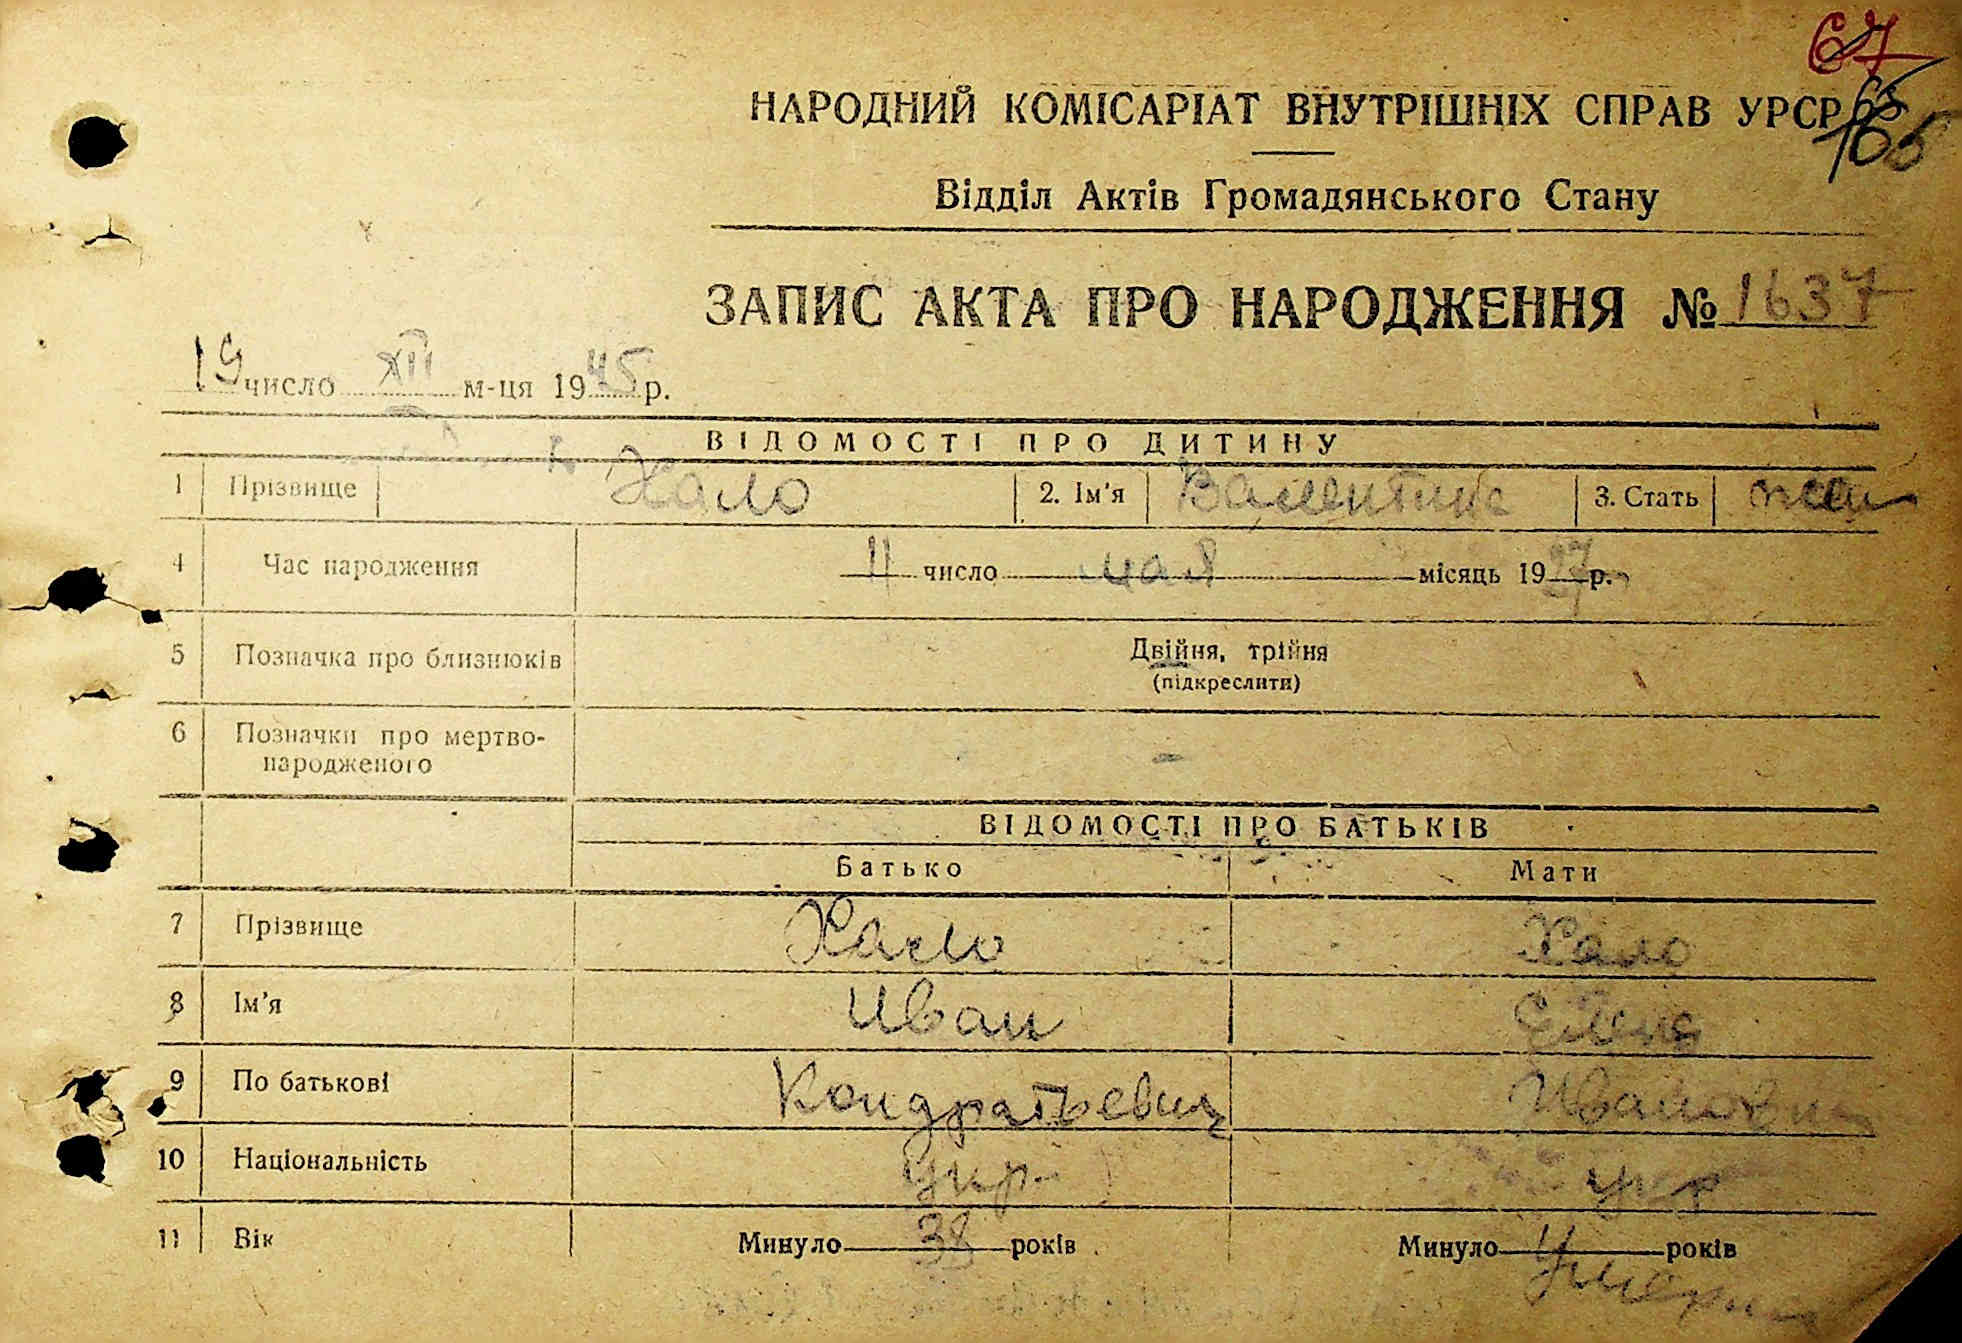 67
65
НАРОДНИЙ КОМІСАРІАТ ВНУТРІШНІХ СПРАВ УРСР
Відділ Актів Громадянського Стану
ЗАПИС АКТА ПРО НАРОДЖЕННЯ № 1637
19 число XII м-ця 1945 р.
ВІДОМОСТІ ПРО ДИТИНУ
1 Прізвище Хало 2. Ім'я Валентина 3. Стать жен
4 Час народження 11 число мая місяць 1927 р.
5 Позначка про близнюків Двійня, трійня
(підкреслити)
6 Позначки про мертво-
народженого -
ВІДОМОСТІ ПРО БАТЬКІВ
Батько Мати
7 Прізвище Хало Хало
8 Ім'я Иван Елена
9 По батькові Кондратьевич Ивановна
10 Національність укр. укр
11 Вік Минуло 38 років Минуло років